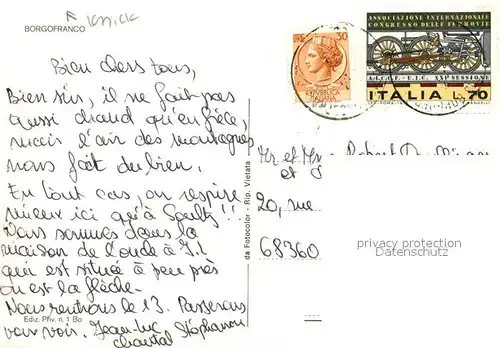 Knick
BORGOFRANCO
Bien chers tous,
Bien sûr, il ne fait pas
aussi chaud qu'en Grèce,
mais l'air des montagnes
nous fait du bien.
En tout cas, on respire
mieux ici qu'à Soultz !!
Nous sommes dans la
maison de l'oncle à J.L
qui est située à peu près
où est la flèche.
Nous rentrons le 13. Passerons
vous voir. Jean-Luc Stéphanie
Chantal
Ediz. Priv. n. 1 Bo
da Fotocolor - Rip. Vietata
30
ASSOCIAZIONE INTERNAZIONALE
CONGRESSO DELLE FERROVIE
A.I.C.C.F. - U.I.C. XXI SESSIONE
ITALIA L.70
et
20, rue
68360
privacy protection
Datenschutz